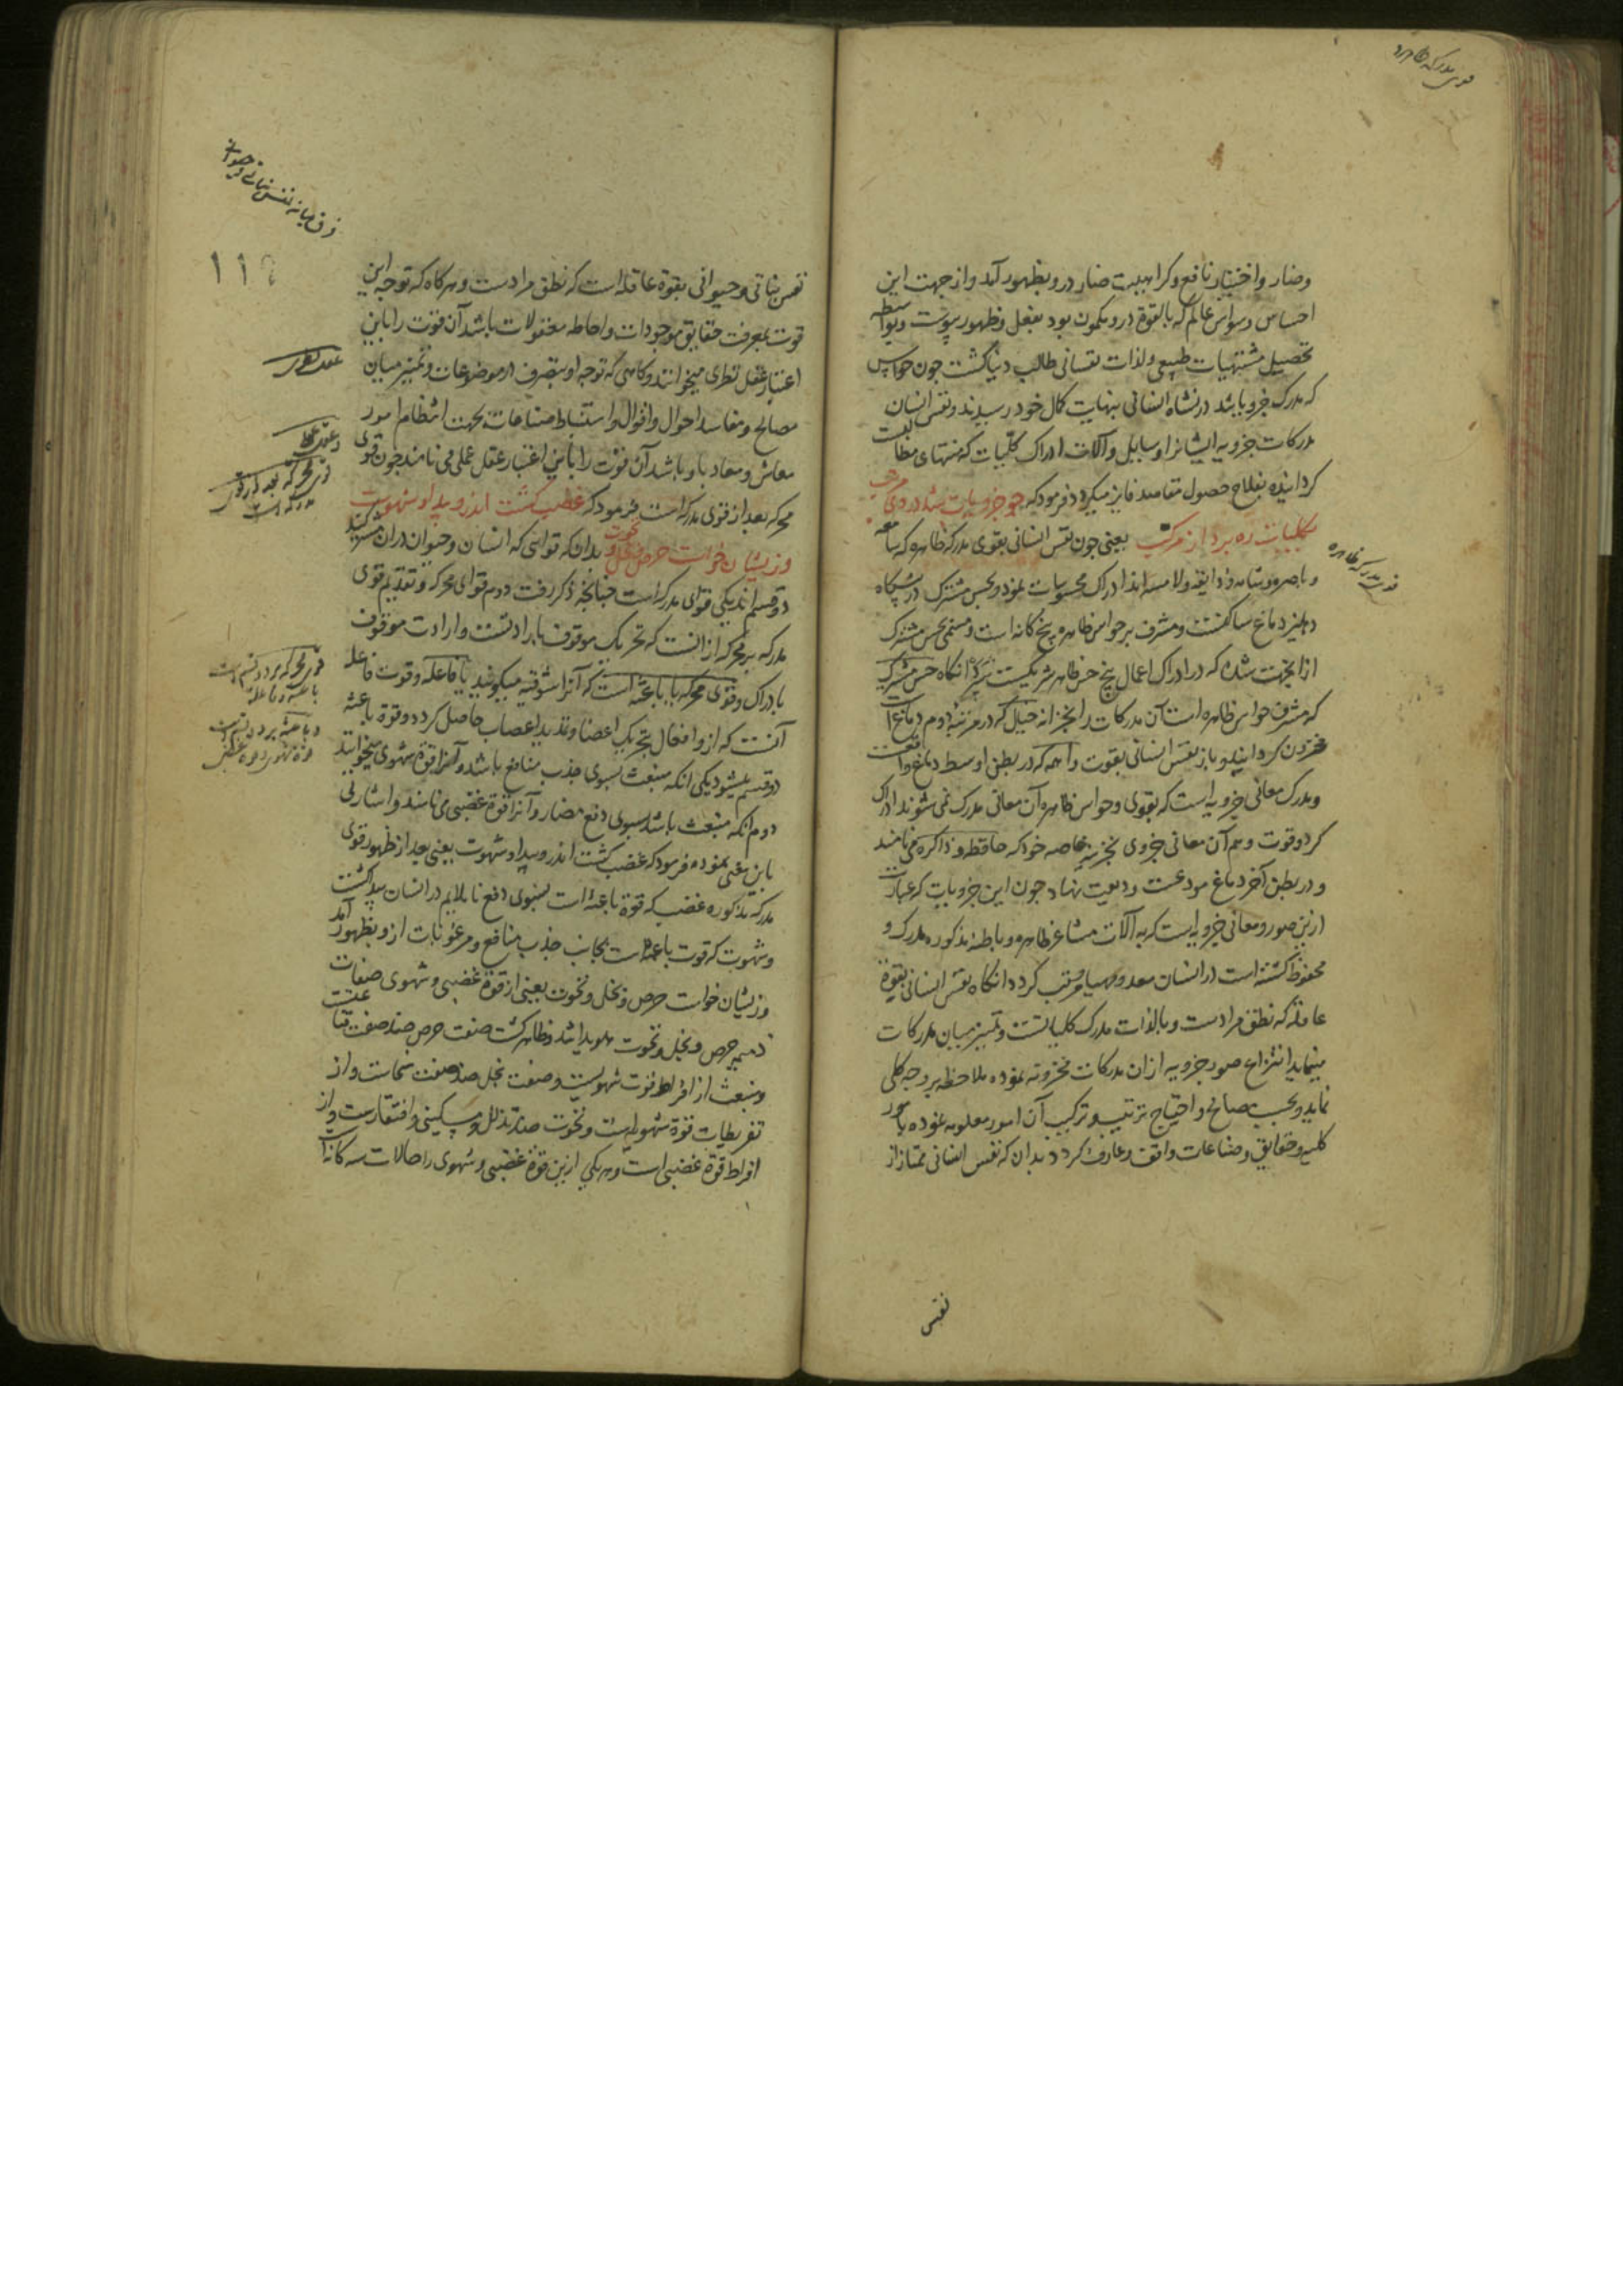 وضار و اختیار نافع و کراهیت ضار درو بظهور آمد و از جهت این
احساس وسواس عالم که بالقوة درو مکمون بود بفعل و ظهور پیوست و بواسطه
تحصیل مشتهیات طبیعی و لذات نفسانی طالب دنیا گشت چون حواس
که مدرک جزویاتند در نشاه انسانی بنهایت کمال خود رسیدند و نفس انسان
مدرکات جزویه ایشانرا وسایل و آلات ادراک کلیات که منتهای مطالبست
گردانیده بفلاح حصول مقاصد فایز میگردد فرمود که چو جزویات شد در وی مرتب
بکلیات ره برد از مرکب یعنی چون نفس انسانی بقوی مدرکه ظاهره که سامعه
و باصره و شامه و ذایقه و لامسه اند ادراک محسوسات نمود و بحس مشترک در پیشگاه
دهلیز دماغ ساکنست و مشرف بر حواس ظاهره پنج گانه است و مسمی بحس مشترک
از اینجهت شده که در ادراک اعمال پنج حس ظاهر شریکست انگاه حس مشترک
که مشرف حواس ظاهره است آن مدرکات را بخزانه خیال که در مرتبه دوم دماغ است
مخزون گردانید و باز نفس انسانی بقوت واهمه که در بطن اوسط دماغ واقعست
و مدرک معانی جزویه است که بقوی و حواس ظاهره آن معانی مدرک نمی شوند ادراک
کرد و قوت وهم آن معانی جزوی بخزینه خاصه خود که حافظه و ذاکره می نامند
و در بطن آخر دماغ مودعست ودیعت نهاد چون این جزویات که عبارت
ازین صور و معانی جزویه است که به آلات مشاعر ظاهره و باطنه مذکوره مدرک و
محفوظ گشته است در انسان معد و مهیا و مرتب گردد انگاه نفس انسانی بقوة
عاقله که نطق مرادست و بالذات مدرک کلیاتست و تمییز میان مدرکات
مینماید انتزاع صور جزویه از ان مدرکات مخزونه نموده ملاحظه بر وجه کلی
نماید و بحسب مصالح و احتیاج ترتیب و ترکیب آن امور معلومه نموده بامور
کلیه و حقایق و صناعات واقف و عارف گردد بدان که نفس انسانی ممتاز از
نفس
نفس نباتی و حیوانی بقوة عاقله است که نطق مرادست و هرگاه که توجه این
قوت بمعرفت حقایق موجودات و احاطه معقولات باشد آن قوت را باین
اعتبار عقل نظری میخوانند و گاهی که توجه او بتصرف در موضوعات و تمییز میان
مصالح و مفاسد احوال و اقوال و استنباط صناعات بجهت انتظام امور
معاش و معاد باو باشد آن قوت را باین اعتبار عقل عملی می نامند چون قوی
محرکه بعد از قوی مدرکه است فرمود که غضب گشت اندرو پیدا و شهوت
وزیشان خواست حرص و بخل و نخوت بدان که قوایی که انسان و حیوان دران مشترکند
دو قسم اند یکی قوای مدرکه است چنانچه ذکر رفت دوم قوای محرکه و تقدیم قوی
مدرکه بر محرکه از انست که تحریک موقوف بارادتست و ارادت موقوف
بادراک و قوی محرکه یا باعثه است که آنرا شوقیه میگویند یا فاعله و قوت فاعله
آنست که ازو افعال تحریک اعضا و تمدید اعصاب حاصل گردد و قوة باعثه
دو قسم میشود یکی انکه منبعث بسوی جذب منافع باشد و آنرا قوة شهوی میخوانند
دوم انکه منبعث باشد بسوی دفع مضار و آنرا قوة غضبی می نامند و اشارتی
باین معنی نموده فرمود که غضب گشت اندرو پیدا و شهوت یعنی بعد از ظهور قوی
مدرکه مذکوره غضب که قوة باعثه است بسوی دفع ناملایم در انسان پیدا گشت
و شهوت که قوت باعثه است بجانب جذب منافع و مرغوبات ازو بظهور آمد
وزیشان خواست حرص و بخل و نخوت یعنی از قوة غضبی و شهوی صفات
ذمیمه حرص و بخل و نخوت هویدا شد و ظاهر گشت صفت حرص ضد صفت قناعتست
و منبعث از افراط قوت شهویست و صفت بخل ضد صفت سخاست و از
تفریطات قوة شهویه است و نخوت ضد تذلل و مسکینی و افتقارست و از
افراط قوة غضبی است و هر یکی ازین قوة غضبی و شهوی را حالات سه گانه است